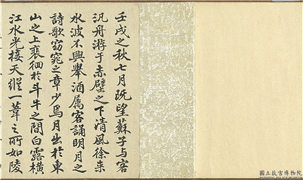 壬戌之秋七月既望蘇子與客
汎舟游于赤壁之下清風徐来
水波不興舉酒屬客誦明月之
詩歌窈窕之章少焉月出於東
山之上裵徊於斗牛之間白露橫
江水光接天縱一葦之所如陵
國立故宮博物院